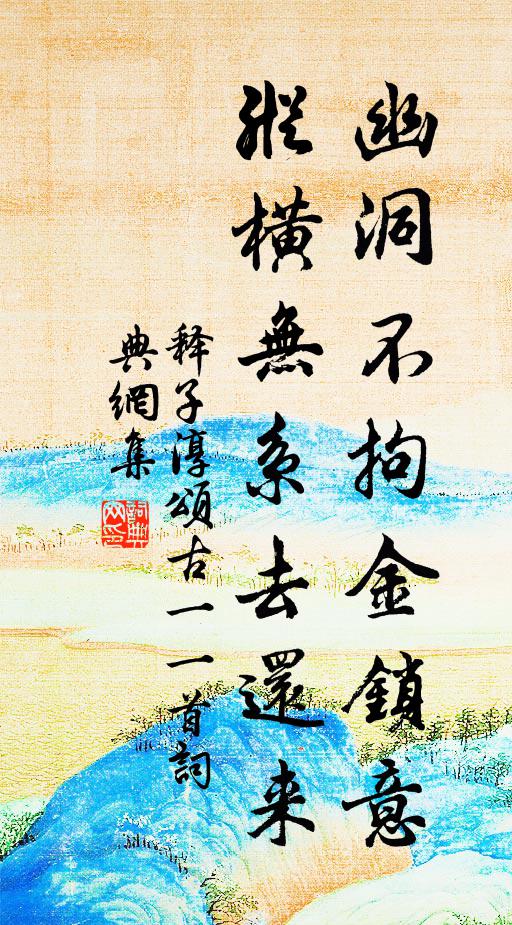 幽洞不拘金鎖意
縱橫無系去還来
释子淳頌古一一首詞
典網集
詞典
网印